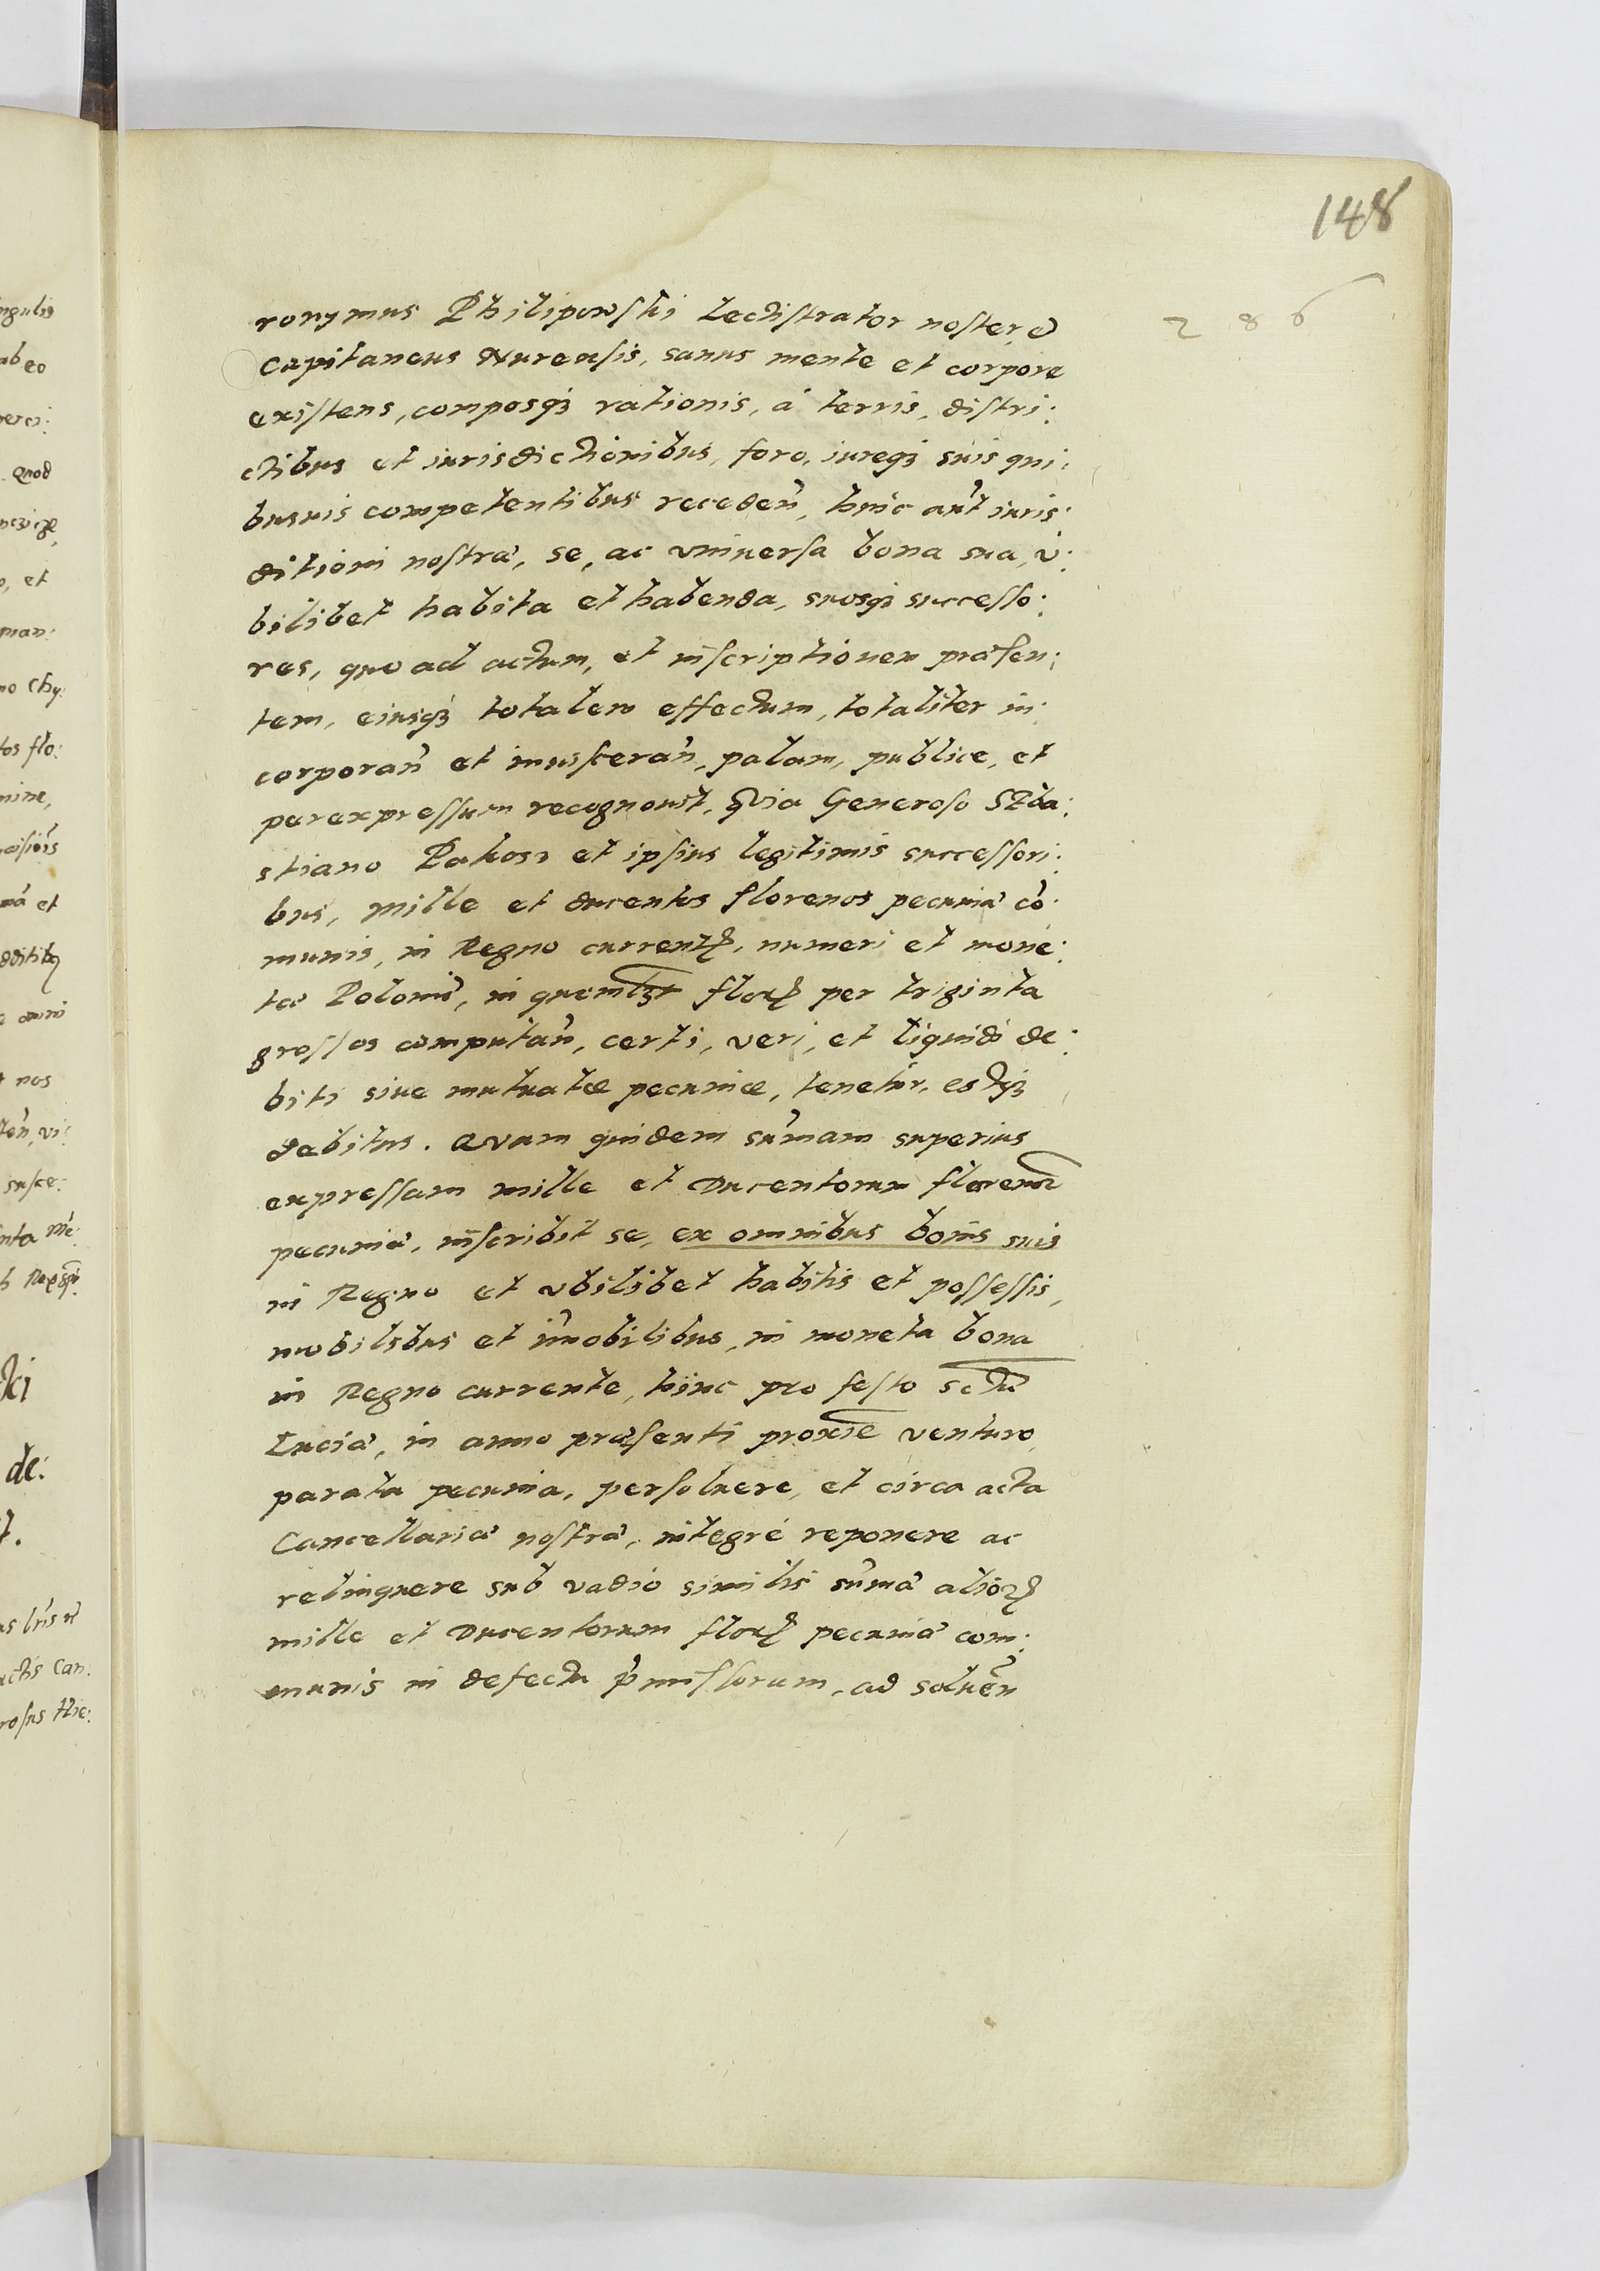 148
286
ronymus Philipowski Lectistrator noster, et
Capitaneus Nurensis, sanus mente et corpore
existens, composq3 rationis, à terris, distri:
ctibus et iurisdictionibus, foro, iureq3 suis qui:
busuis competentibus recedeñ, huic aut̃ iuris:
ditioni nostræ, se, ac vniuersa bona sua, v:
bilibet habita et habenda, suosq3 successo:
res, quo ad actum, et inscriptionem præsen:
tem, eiusq3 totalem effectum, totaliter in:
corporañ et inuisceran̄, palam, publice, et
per expressum recognouit, Quia Generoso Seba:
stiano Pakosz et ipsius legitimis successori:
bus, Mille et ducentos florenos pecuniæ cõ:
munis, in Regno currentꝭ, numeri et mone:
tæ Polonicæ, in quemlꝫt florꝭ per triginta
grossos computañ, certi, veri, et liquidi de:
biti siue mutuatæ pecuniæ, tenetur, estq3
debitus. Quam quidem sum̃am superius
expressam mille et Ducentorum florenoꝝ
pecuniæ, inscribit se, ex omnibus bonis suis
in Regno et vbilibet habitis et possessis,
mobilibus et im̃obilibus, in moneta bona
in Regno currente, hinc pro festo Sctæ
Luciæ, in anno præsenti proxĩe venturo
parata pecunia, persoluere, et circa acta
Cancellariæ nostræ, integrè reponere ac
relinquere sub vadio similis sum̃æ alioꝝ
mille et Ducentorum florꝭ pecuniæ com:
munis in defectu p̃missorum, ad soluen̄
ngulis
ab eo
Quod
o, et
man:
no Chy:
tos flo:
mine,
mâ et
nos
susce:
nta Me:
ki
de:
t.
actis Can:
rosus Hie: